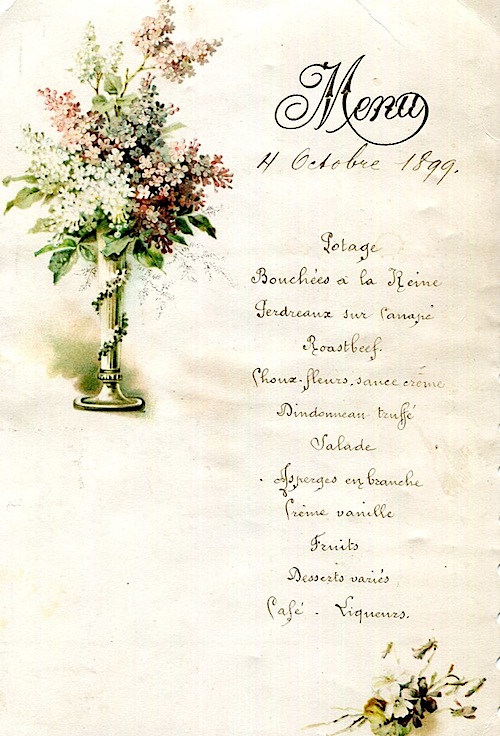 Menu
4 Octobre 1899.
Potage
Bouchées à la Reine
Perdreaux sur Canapé
Roastbeef.
Choux-fleurs, sauce crême
Dindonneau truffé
Salade
Asperges en branche
Crème vanille
Fruits
Desserts variés
Café - Liqueurs.